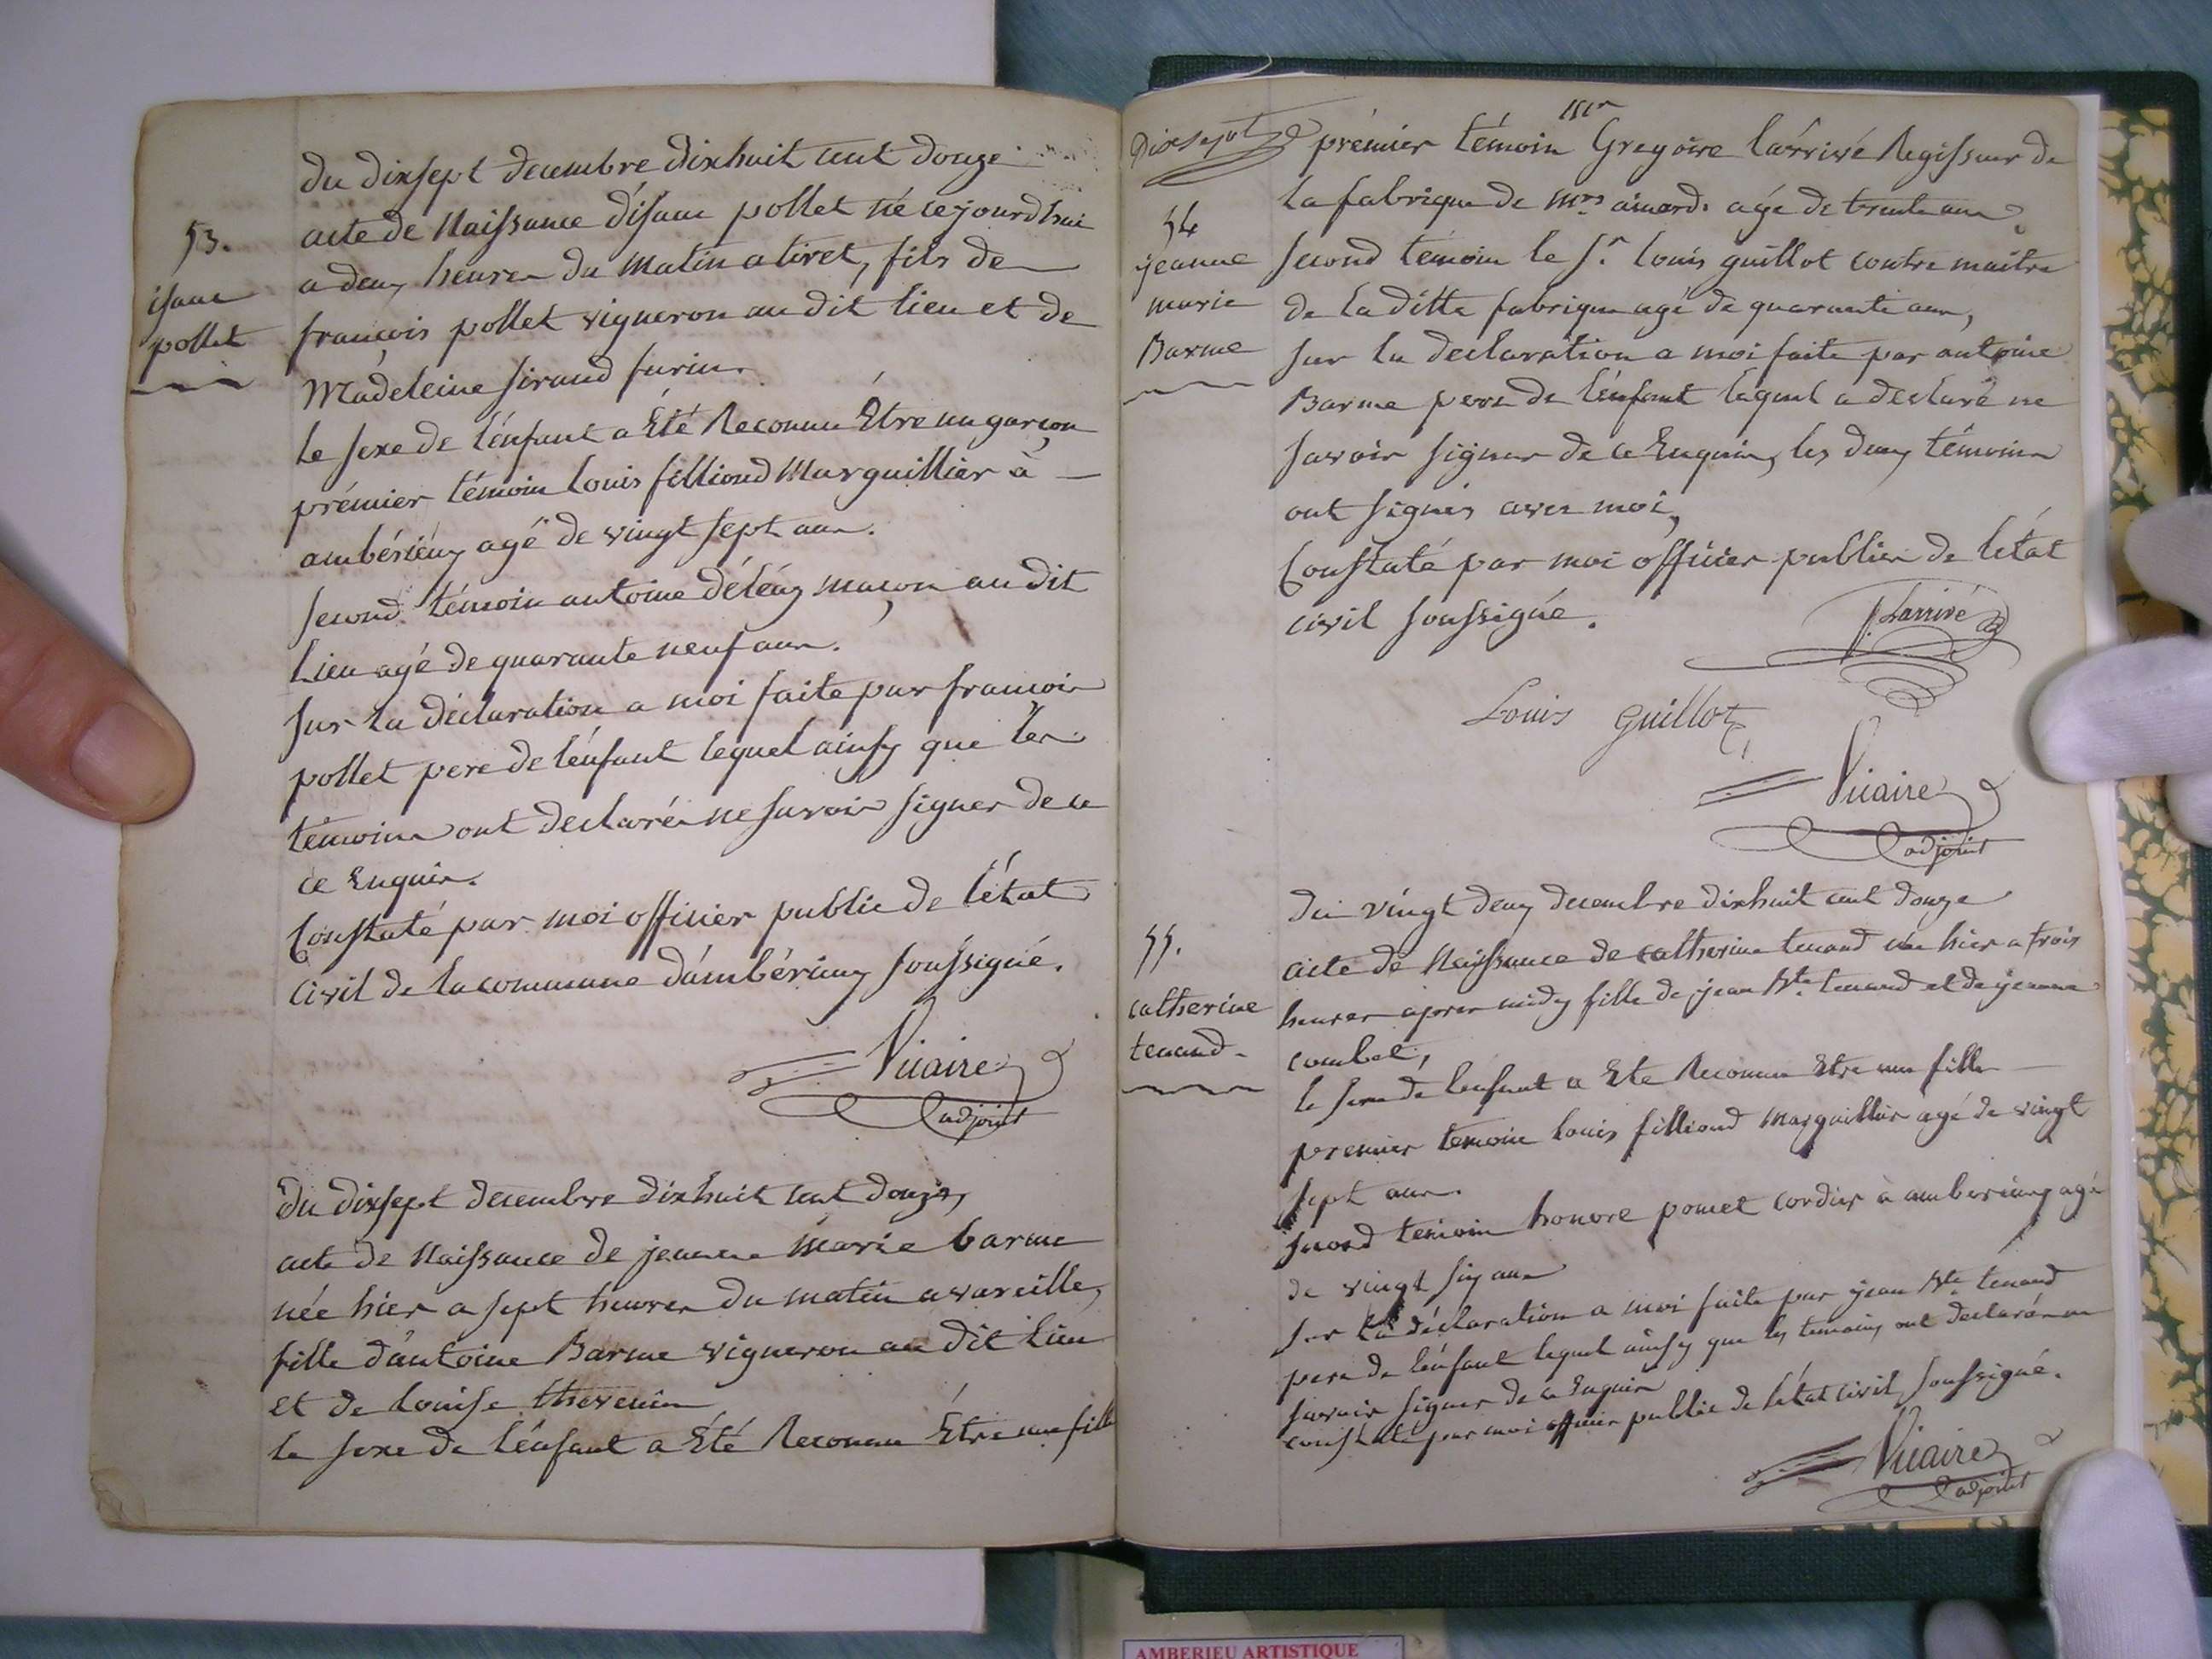 du dixsept decembre dixhuit cent douze
53.
isaac
pollet
acte de Naissance d'isaac pollet né cejourdhui
a deux heures du matin a tiret, fils de
francois pollet vigneron au dit lieu et de
Madeleine sirand furin.
le sexe de l'énfant a Eté Reconnu Etre un garçon
prémier témoin louis filliond Marguillier à
ambérieux agé de vingt sept ans.
second témoin antoine déléaz maçon au dit
lieu agé de quarante neuf ans.
sur la déclaration a moi faite par francois
pollet pere de l'énfant lequel ainsy que les
témoins ont declarés ne savoir signer de ce
ce Enquis.
Constaté par moi officier public de l'état
civil de la commune d'ambérieux soussigné.
Vicaire
adjoint
du dixsept decembre dixhuit cent douze,
acte de Naissance de jeanne marie barme
née hier a sept heures du matin a vareille,
fille d'antoine Barme vigneron au dit lieu
et de louise thevenin
le sexe de l'énfant a Eté Reconnu Etre une fille
dixsept
54
jeanne
marie
Barme
prémier témoin mr Gregoire larrivé Regisseur de
la fabrique de mrs aimard. agé de trente ans
second témoin le sr. louis guillot contre maitre
de la ditte fabrique agé de quarante ans,
sur la declaration a moi faite par antoine
Barme pere de l'énfant lequel a declaré ne
savoir signer de ce Enquis, les deux témoins
ont signés avec moi,
Constaté par moi officier public de l'état
civil soussigné.
Larrivé
Louis Guillot
Vicaire
adjoint
du vingt deux decembre dixhuit cent douze
55.
catherine
tenand.
acte de Naissance de catherine tenand née hier a trois
heures apres midy fille de jean Bte. tenand et de jeanne
combet,
le sexe de l'enfant a Eté Reconnu Etre une fille
premier temoin louis filliond Marguillier agé de vingt
sept ans.
second temoin honore pomet cordier à amberieux agé
de vingt six ans
sur la déclaration a moi faite par jean Bte tenand
pere de l'énfant lequel ainsy que les temoins ont declarés ne
savoir signer de ce Enquis
constaté par moi officier public de l'état civil soussigné.
Vicaire
adjoint
AMBERIEU ARTISTIQUE